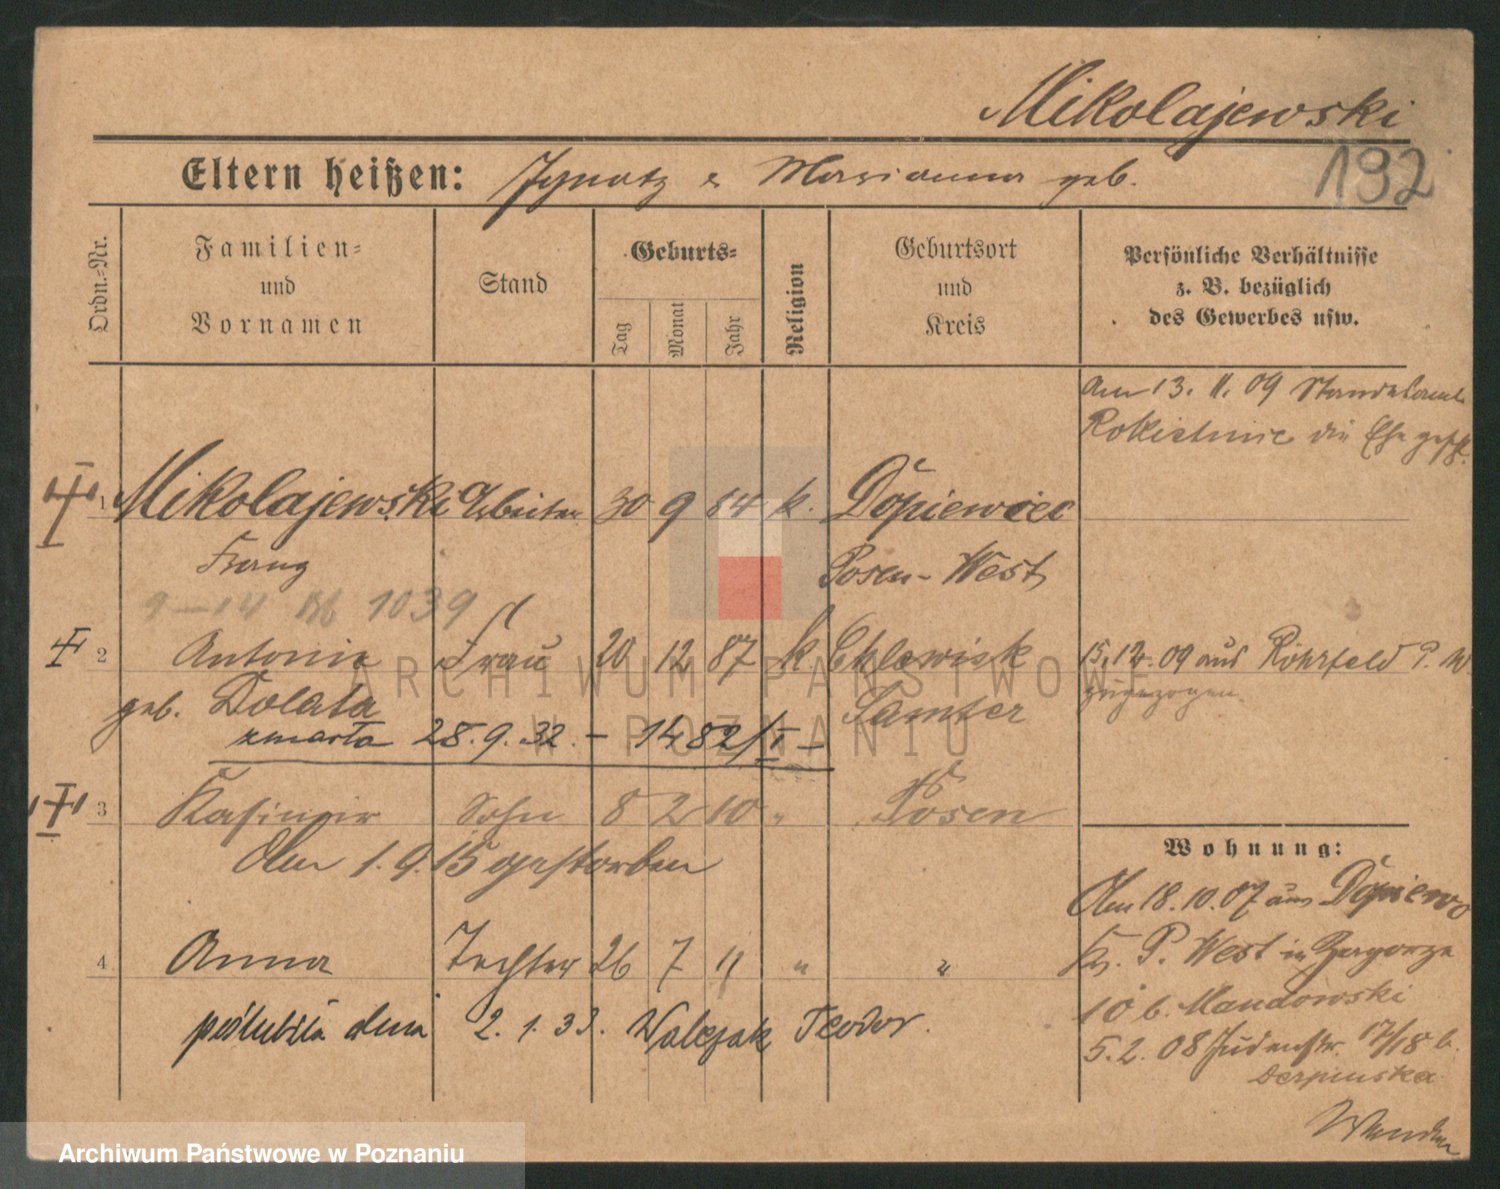 Mikolajewski
192
Eltern heißen: Ignatz & Marianna geb.
Ordn.-Nr.
Familien-
und
Vornamen
Stand
Geburts-
Tag
Monat
Jahr
Religion
Geburtsort
und
Kreis
Persönliche Verhältnisse
z. B. bezüglich
des Gewerbes usw.
Am 13. 11. 09 Standesamt
Rokietnice die Ehe geschl.
1 Mikolajewski Arbeiter 30 9 84 k. Dopiewiec
Franz Posen-West
9-14 1039
2 Antonie Frau 20 12 87 k. Chlewisk 15.12.09 aus Röhrfeld P. W.
geb. Dolata Samter zugezogen
zmarła 28.9.32. - 1482/I -
3 Kasimir Sohn 8 2 10 " Posen
Am 1.9.15 gestorben
Wohnung:
Am 18.10.07 aus Dopiewo
4 Anna Tochter 26 7 11 " "
Kr. P. West in Zagorze
10 b. Mandowski
poślubiła dnia 2.1.33. Walczak Teodor.
5.2.08 Judenstr. 17/18 b.
Wenden
ARCHIWUM PAŃSTWOWE
W POZNANIU
Archiwum Państwowe w Poznaniu